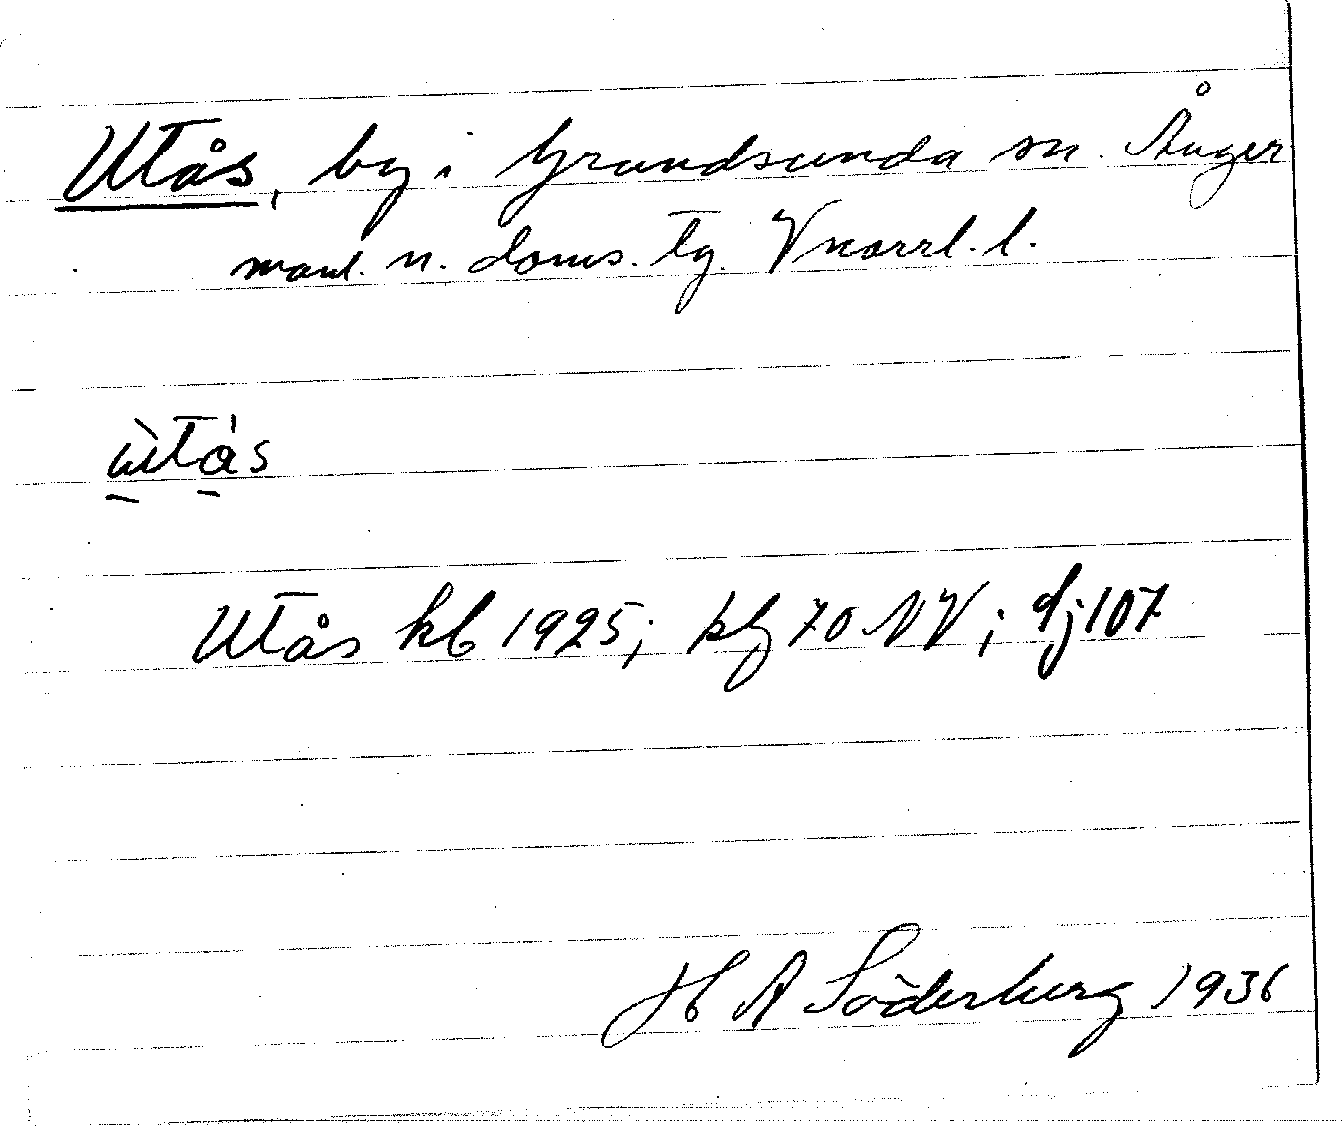 Utås, by i Grundsunda sn. Ånger
manl. n. doms. tg. Vnorrl. l.
ùtås
Utås kb 1925; kbl 70 NV; dj 107
H A Söderberg 1936